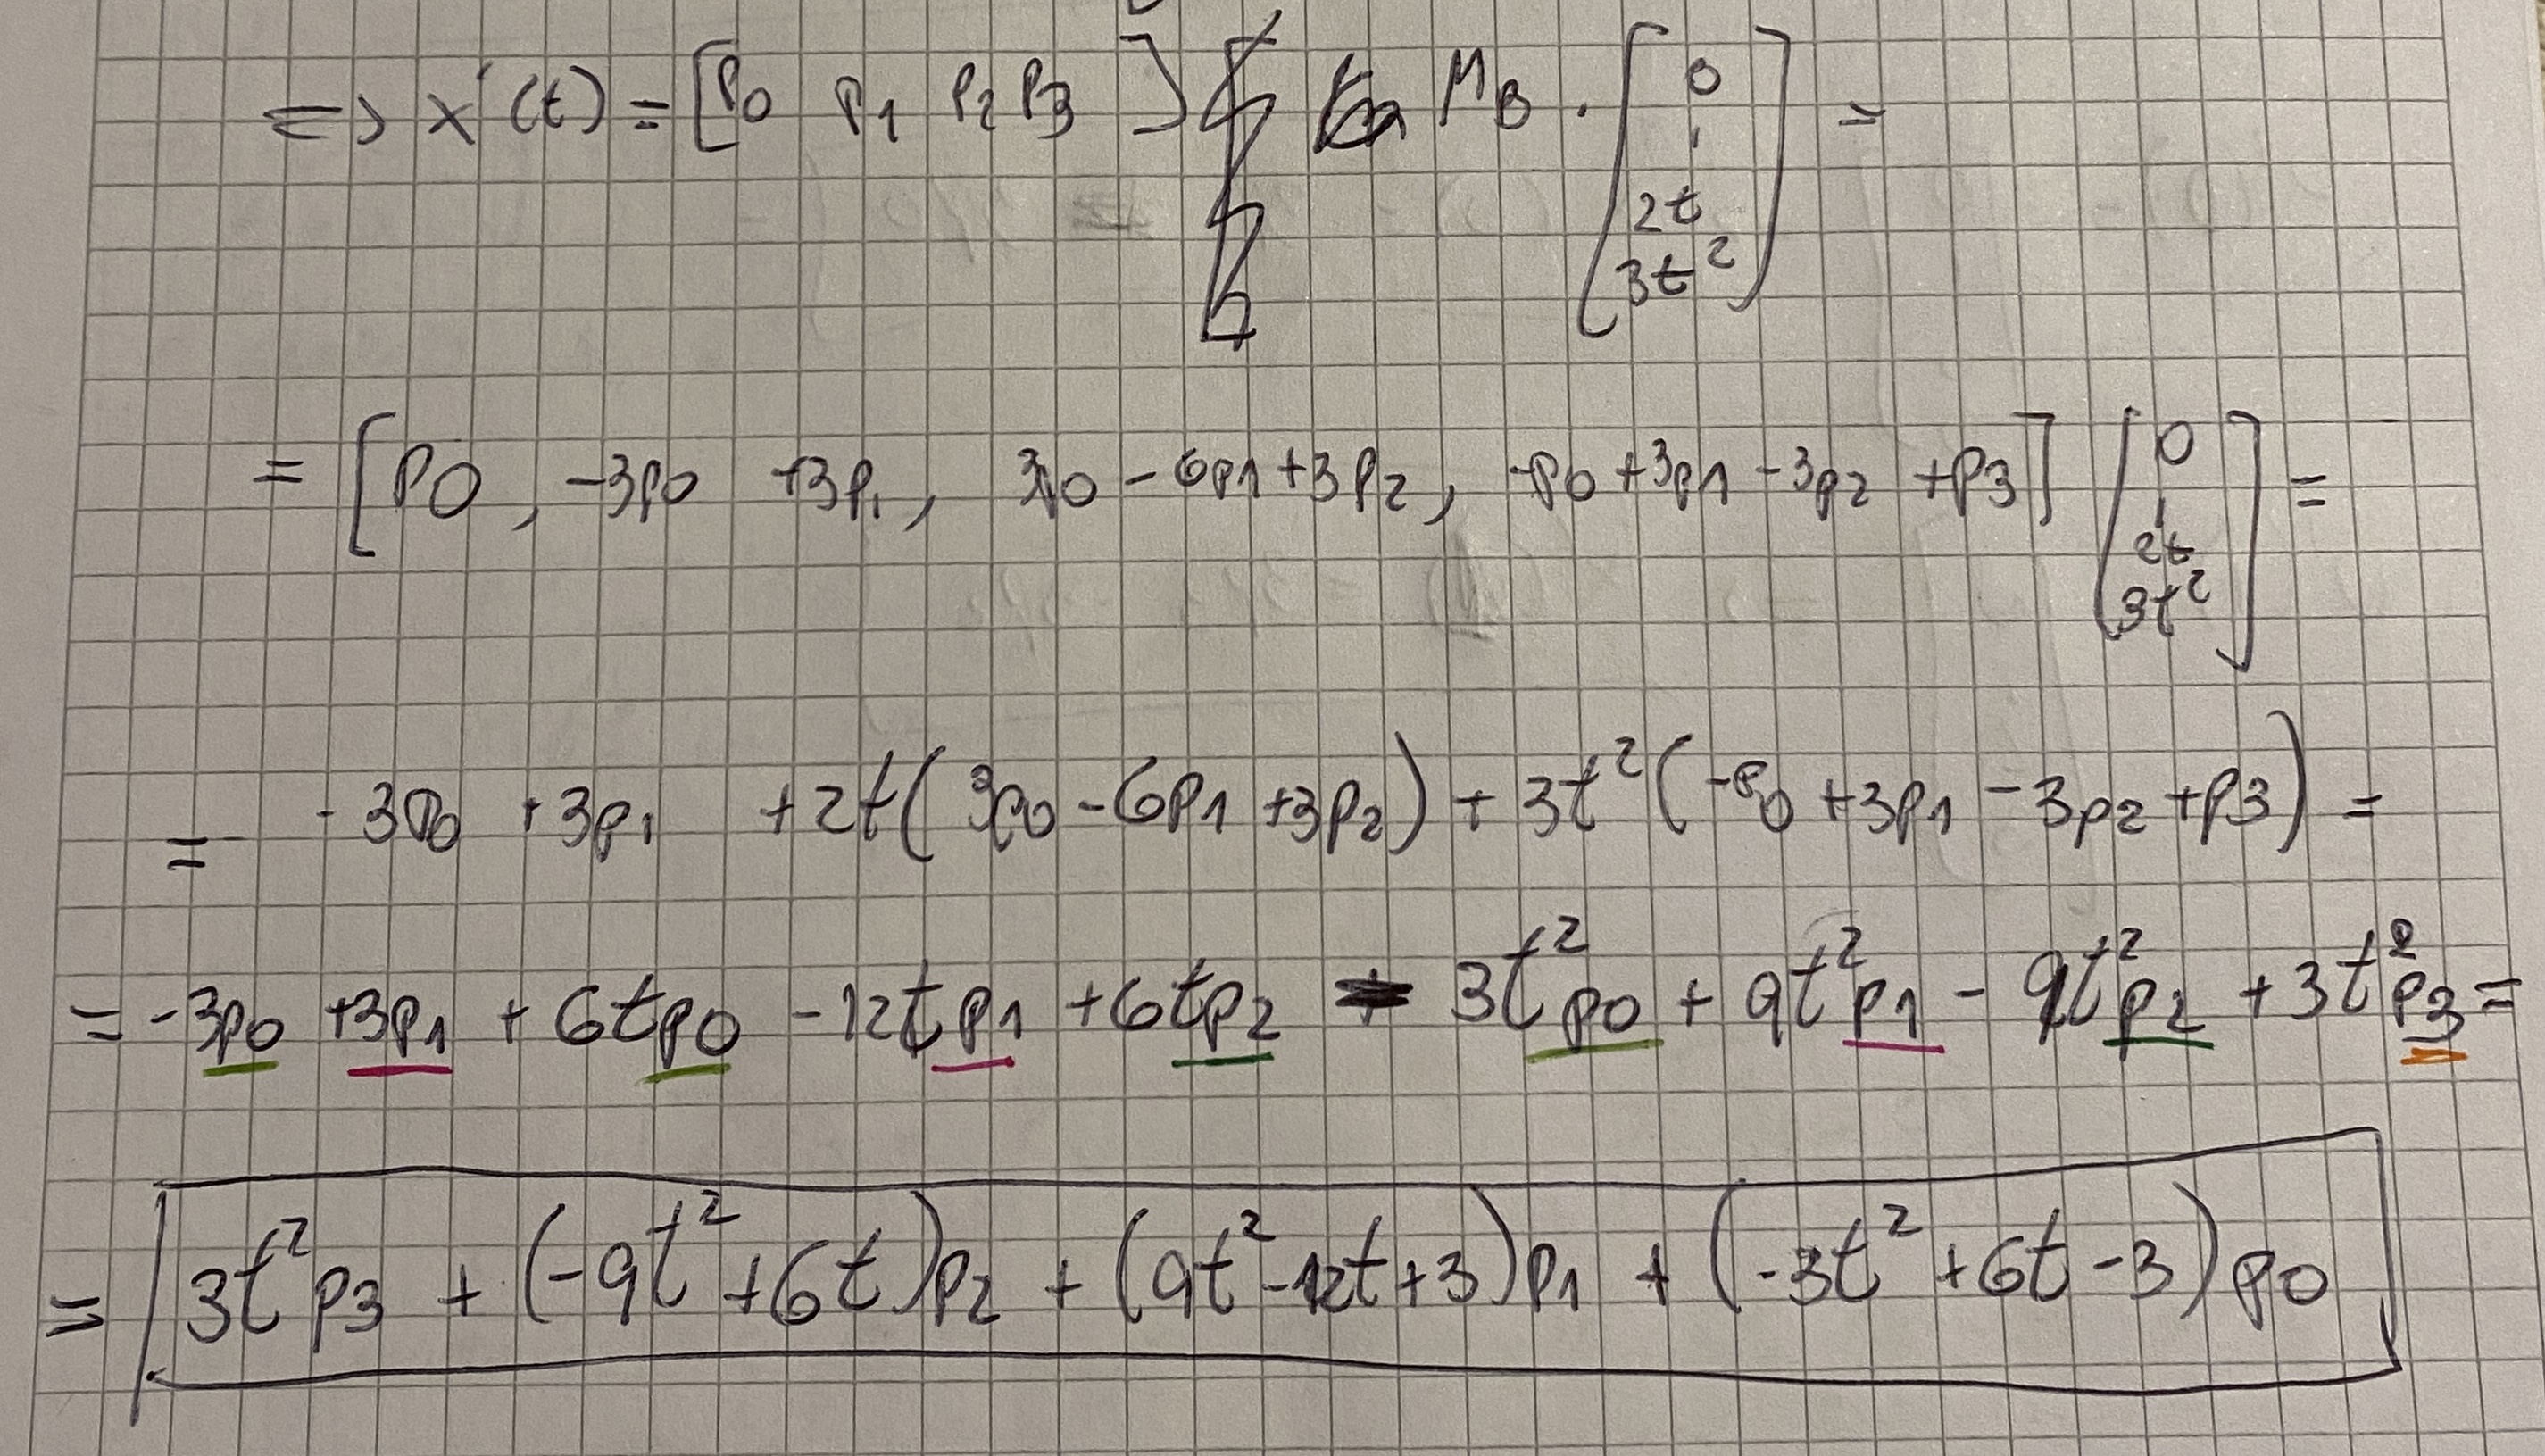 => x'(t) = [p0 p1 p2 p3] MB · [0 1 2t 3t²] =
= [p0, -3p0 +3p1, 3p0 - 6p1 + 3p2, -p0 + 3p1 - 3p2 + p3] [0 1 2t 3t²] =
= -3p0 + 3p1 + 2t(3p0 - 6p1 + 3p2) + 3t²(-p0 + 3p1 - 3p2 + p3) =
= -3p0 + 3p1 + 6tp0 - 12tp1 + 6tp2 - 3t²p0 + 9t²p1 - 9t²p2 + 3t²p3 =
= 3t²p3 + (-9t² + 6t)p2 + (9t² - 12t + 3)p1 + (-3t² + 6t - 3)p0